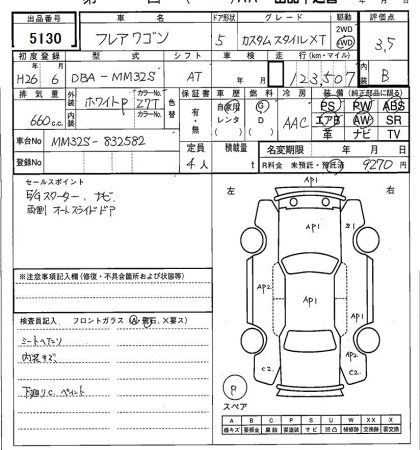 出品番号 車名 ドア形状 グレード 駆動 評価点
5130 フレアワゴン 5 カスタムスタイルXT 2WD 4WD 3,5
初度登録 型式 シフト 車検 走行(km・マイル) 内装
H26年6月 DBA-MM32S AT 年 月 123,507 B
排気量 外装 カラーNo. 色替 保証書 車歴 燃料 冷房 装備(純正部品に限る)
660c.c. ホワイトP Z7T 有・無 自家用 レンタ G D AAC PS PW ABS
内装 カラーNo. エアB AW SR
革 ナビ TV
車台No MM32S-832582 定員 積載量 名変期限 年 月 日
登録No 4人 t R料金 未預託・預託済 9270円
セールスポイント
E/gスターター、ナビ
両側オートスライドドア
左 右
Ap1
Ap1 B1
Ap2 Ap1 Ap1
Ap2
C2. C2.
Ap1
※注意事項記入欄(修復・不具合箇所および状態等)
検査員記入 フロントガラス(A・飛石、×要ス)
シートヘタリ
内装キズ
下廻りC.ペイント
P
スペア
A B C P S U W XX X
線キズ 要板金 腐蝕 要塗装 サビ 凹凸 補修跡 交換跡 要交換